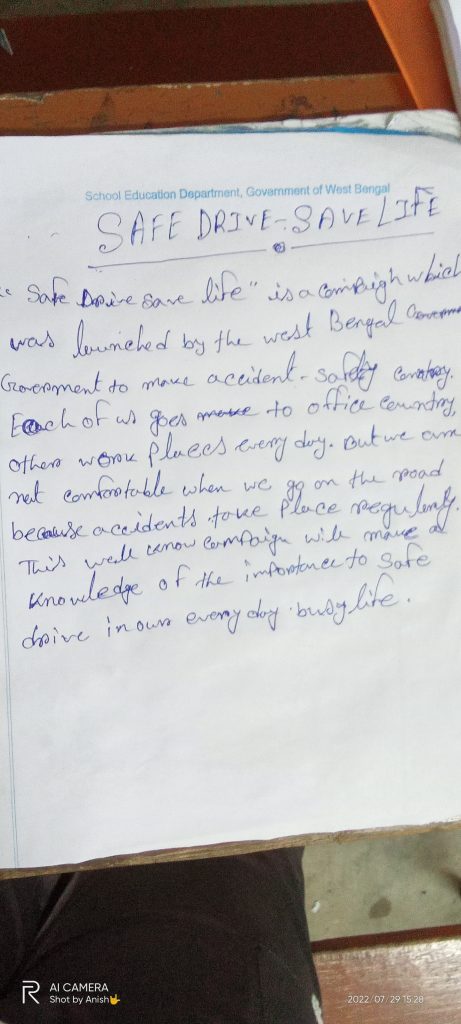 School Education Department, Government of West Bengal
SAFE DRIVE-SAVE LIFE
"Safe Drive Save life" is a campaigh which
was launched by the west Bengal
Government to make accident-safety country.
Each of us goes make to office country,
others work Places every day. But we are
not comfortable when we go on the road
because accidents take Place regularly.
This well know campaign will make a
knowledge of the importance to safe
drive in our every day busy life.
AI CAMERA
Shot by Anish🤟
2022/07/29 15:28